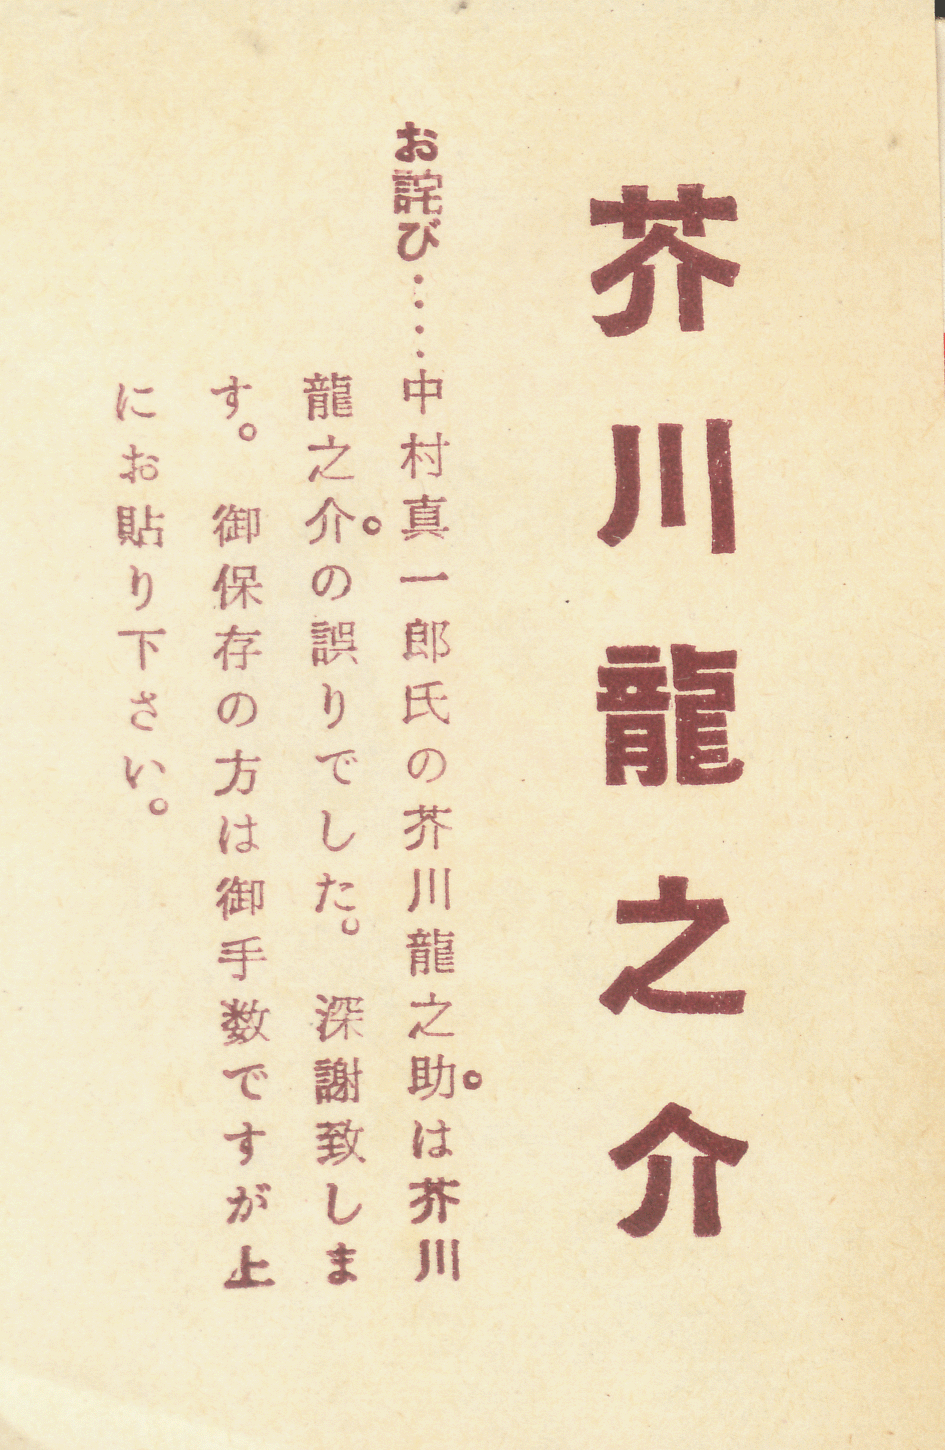 芥川龍之介
お詫び‥‥中村真一郎氏の芥川龍之助。は芥川
龍之介。の誤りでした。　深謝致しま
す。　御保存の方は御手数ですが上
にお貼り下さい。